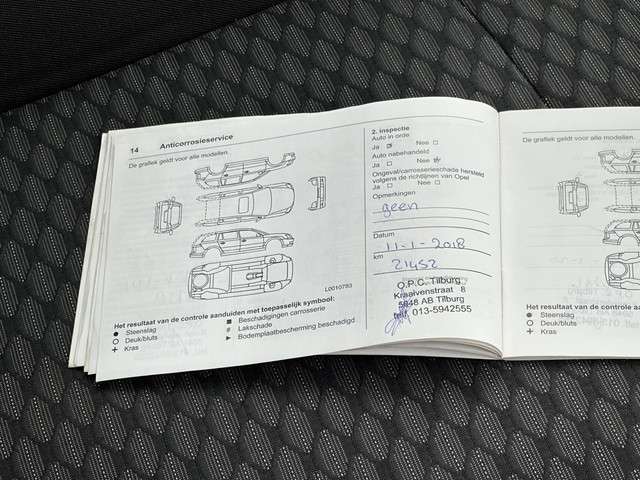 14 Anticorrosieservice
De grafiek geldt voor alle modellen.
L0010783
Het resultaat van de controle aanduiden met toepasselijk symbool:
● Steenslag
○ Deuk/bluts
+ Kras
■ Beschadigingen carrosserie
# Lakschade
► Bodemplaatbescherming beschadigd
2. inspectie
Auto in orde
Ja □ Nee □
Auto nabehandeld
Ja □ Nee □
Ongeval/carrosserieschade hersteld
volgens de richtlijnen van Opel
Ja □ Nee □
Opmerkingen
geen
Datum
11-1-2018
km
21452
O.P.C. Tilburg
Kraaivenstraat 8
5048 AB Tilburg
telf. 013-5942555
De grafiek geldt voor alle mode
Het resultaat van de controle aa
● Steenslag
○ Deuk/bluts
+ Kras